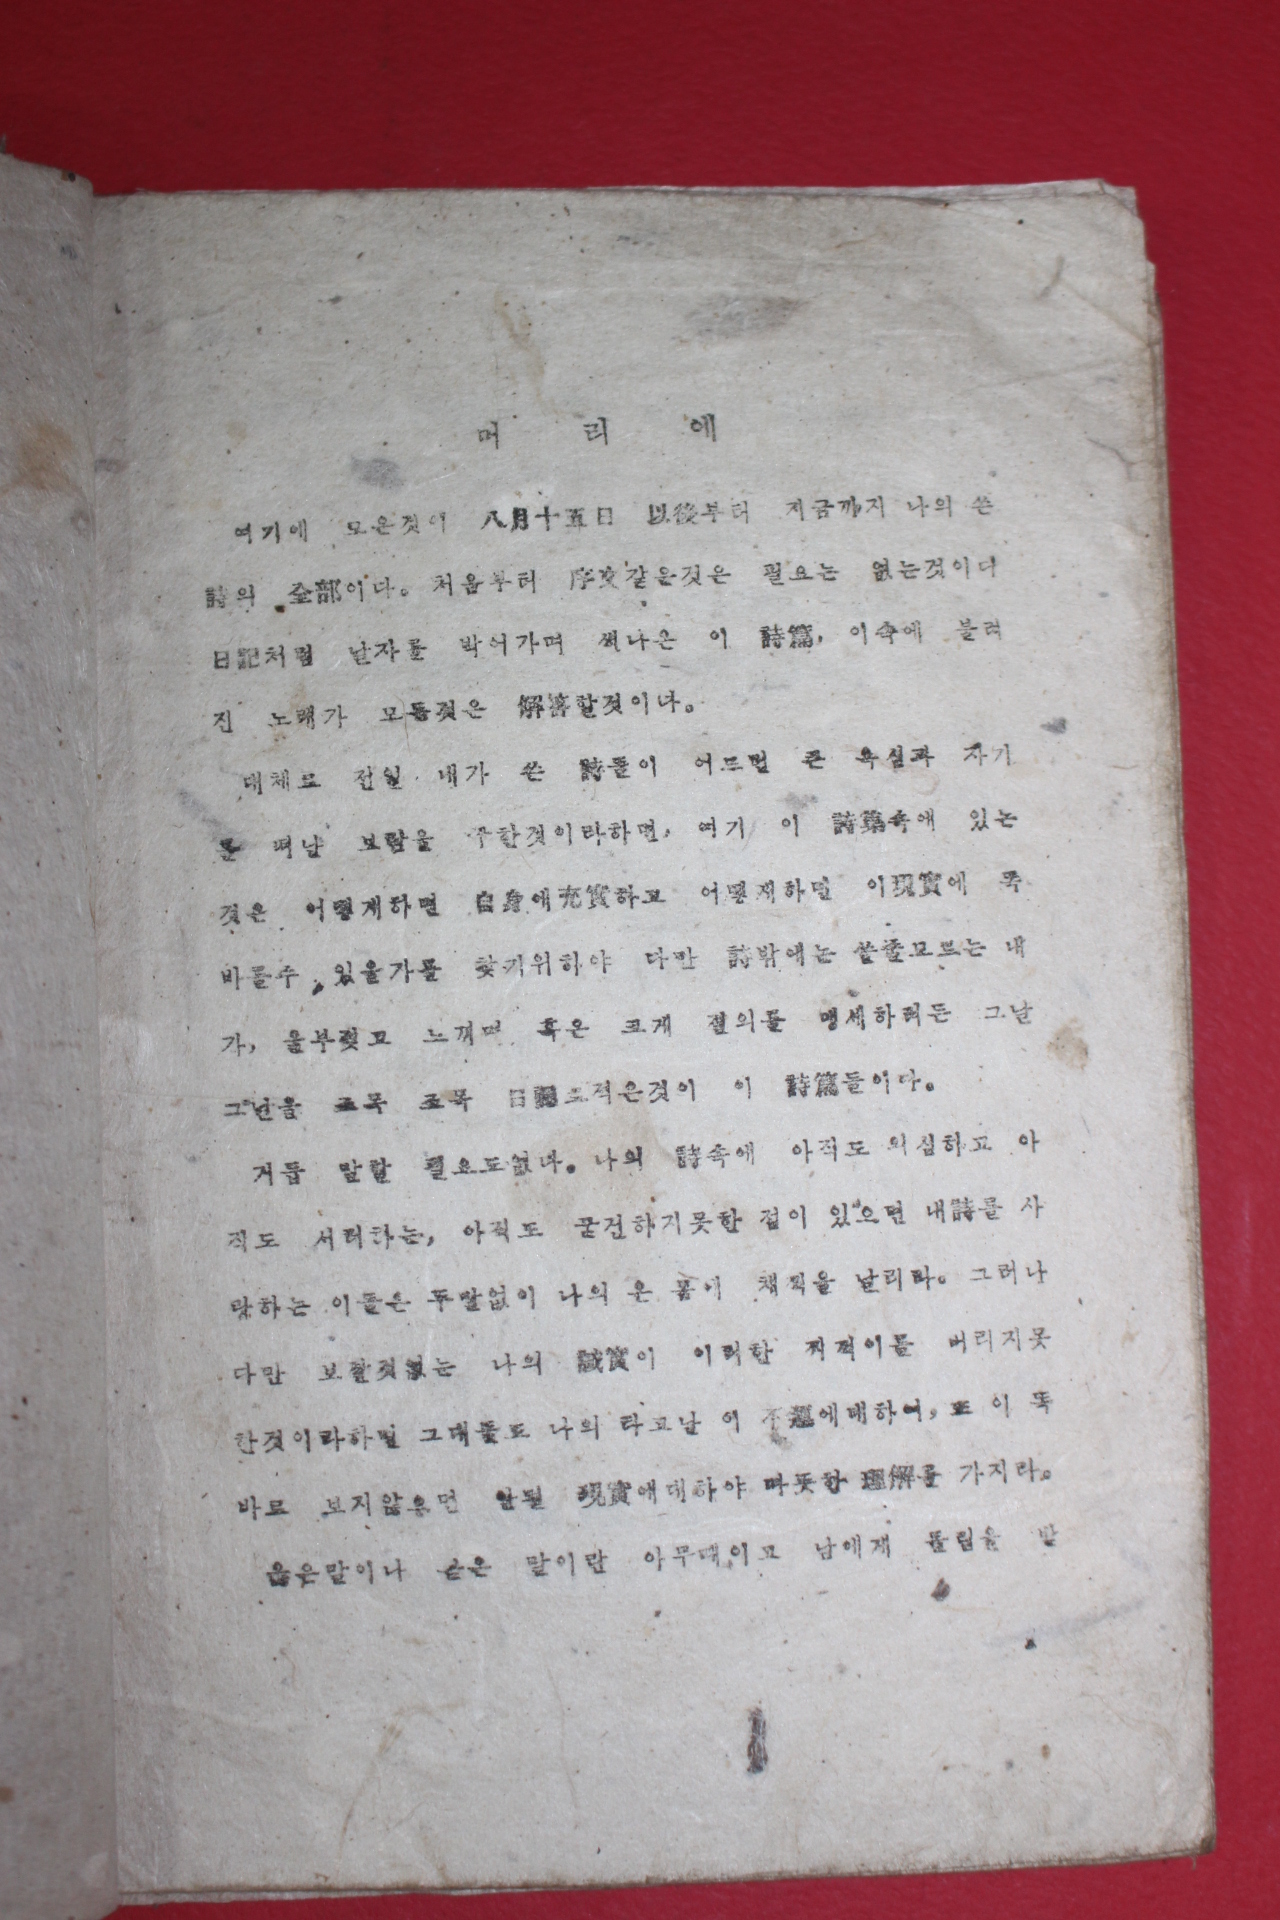 머리에
여기에 모은것이 八月十五日 以後부터 지금까지 나의 쓴
詩의 全部이다。 처음부터 序文같은것은 필요는 없는것이다
日記처럼 날자를 박어가며 써나온 이 詩篇, 이속에 불려
진 노래가 모든것은 解答할것이다。
대체로 전일 내가 쓴 詩들이 어드런 큰 욕심과 자기
를 떠난 보람을 구한것이라하면, 여기 이 詩篇속에 있는
것은 어떻게하면 自身에充實하고 어떻게하면 이現實에 똑
바를수 있을가를 찾기위하야 다만 詩밖에는 쓸줄모르는 내
가, 울부짖고 느끼며 혹은 크게 결의를 맹세하려든 그날
그날을 조목 조목 日記로적은것이 이 詩篇들이다。
거듭 말할 필요도없다。 나의 詩속에 아직도 의심하고 아
직도 서러하는, 아직도 굳건하지못한 점이 있으면 내詩를 사
랑하는 이들은 두말없이 나의 온 몸에 채찍을 날리라。 그러나
다만 보잘것없는 나의 誠實이 이러한 찌꺽이를 버리지못
한것이라하면 그대들도 나의 타고난 이 에대하여, 또 이 똑
바로 보지않으면 안될 現實에대하야 따뜻한 理解를 가지라。
옳은말이나 굳은 말이란 아무때이고 남에게 물림을 받